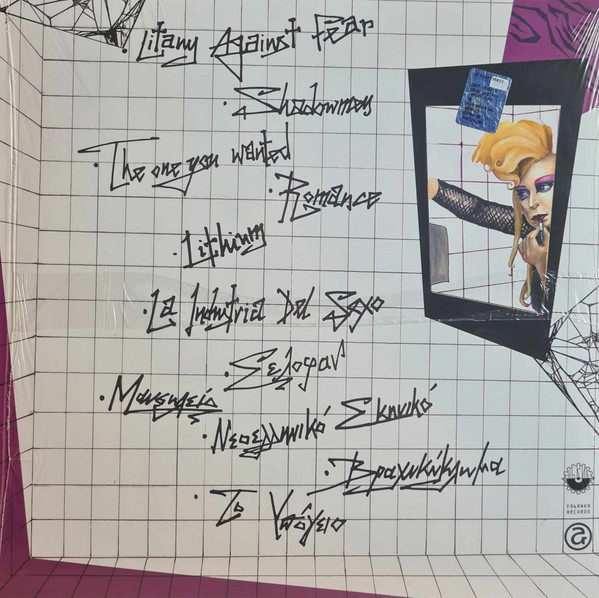 · Litany Against Fear
· Shadowmen
· The one you wanted
· Romance
· Lithium
· La Industria Del Sexo
· Σελοφάν
· Μαυσωλείο
· Νεοελληνικό Σκηνικό
· Βραχυκύκλωμα
· Το Υπόγειο
FABRIKA
RECORDS